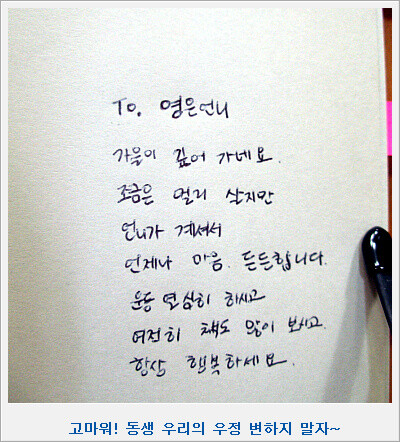 To. 영은언니
가을이 깊어 가네요.
조금은 멀리 살지만
언니가 계셔서
언제나 마음. 든든합니다.
운동 열심히 하시고
여전히 책도 많이 보시고.
항상 행복하세요.
고마워! 동생 우리의 우정 변하지 말자~